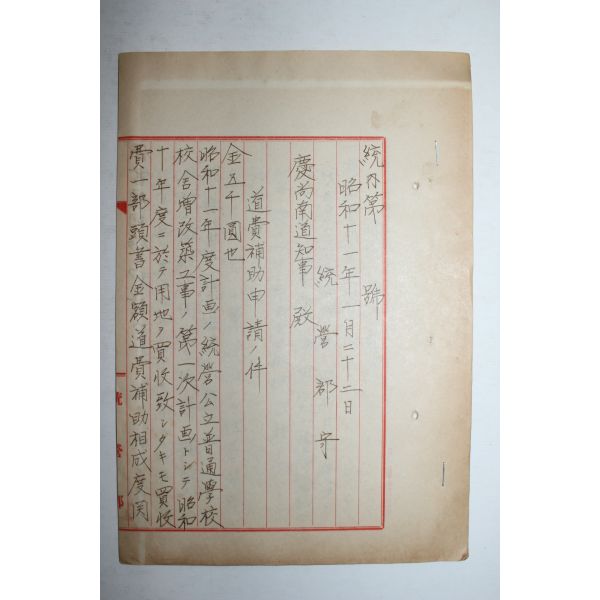 統内第　　號
昭和十一年一月二十二日
統營郡守
慶尚南道知事 殿
道費補助申請ノ件
金五千圓也
昭和十一年度計画ノ統營公立普通學校
校舎增改築工事ノ第一次計画トシテ昭和
十年度ニ於テ用地ヲ買收致シタキモ買收
費一部頭書金額道費補助相成度関
統營郡